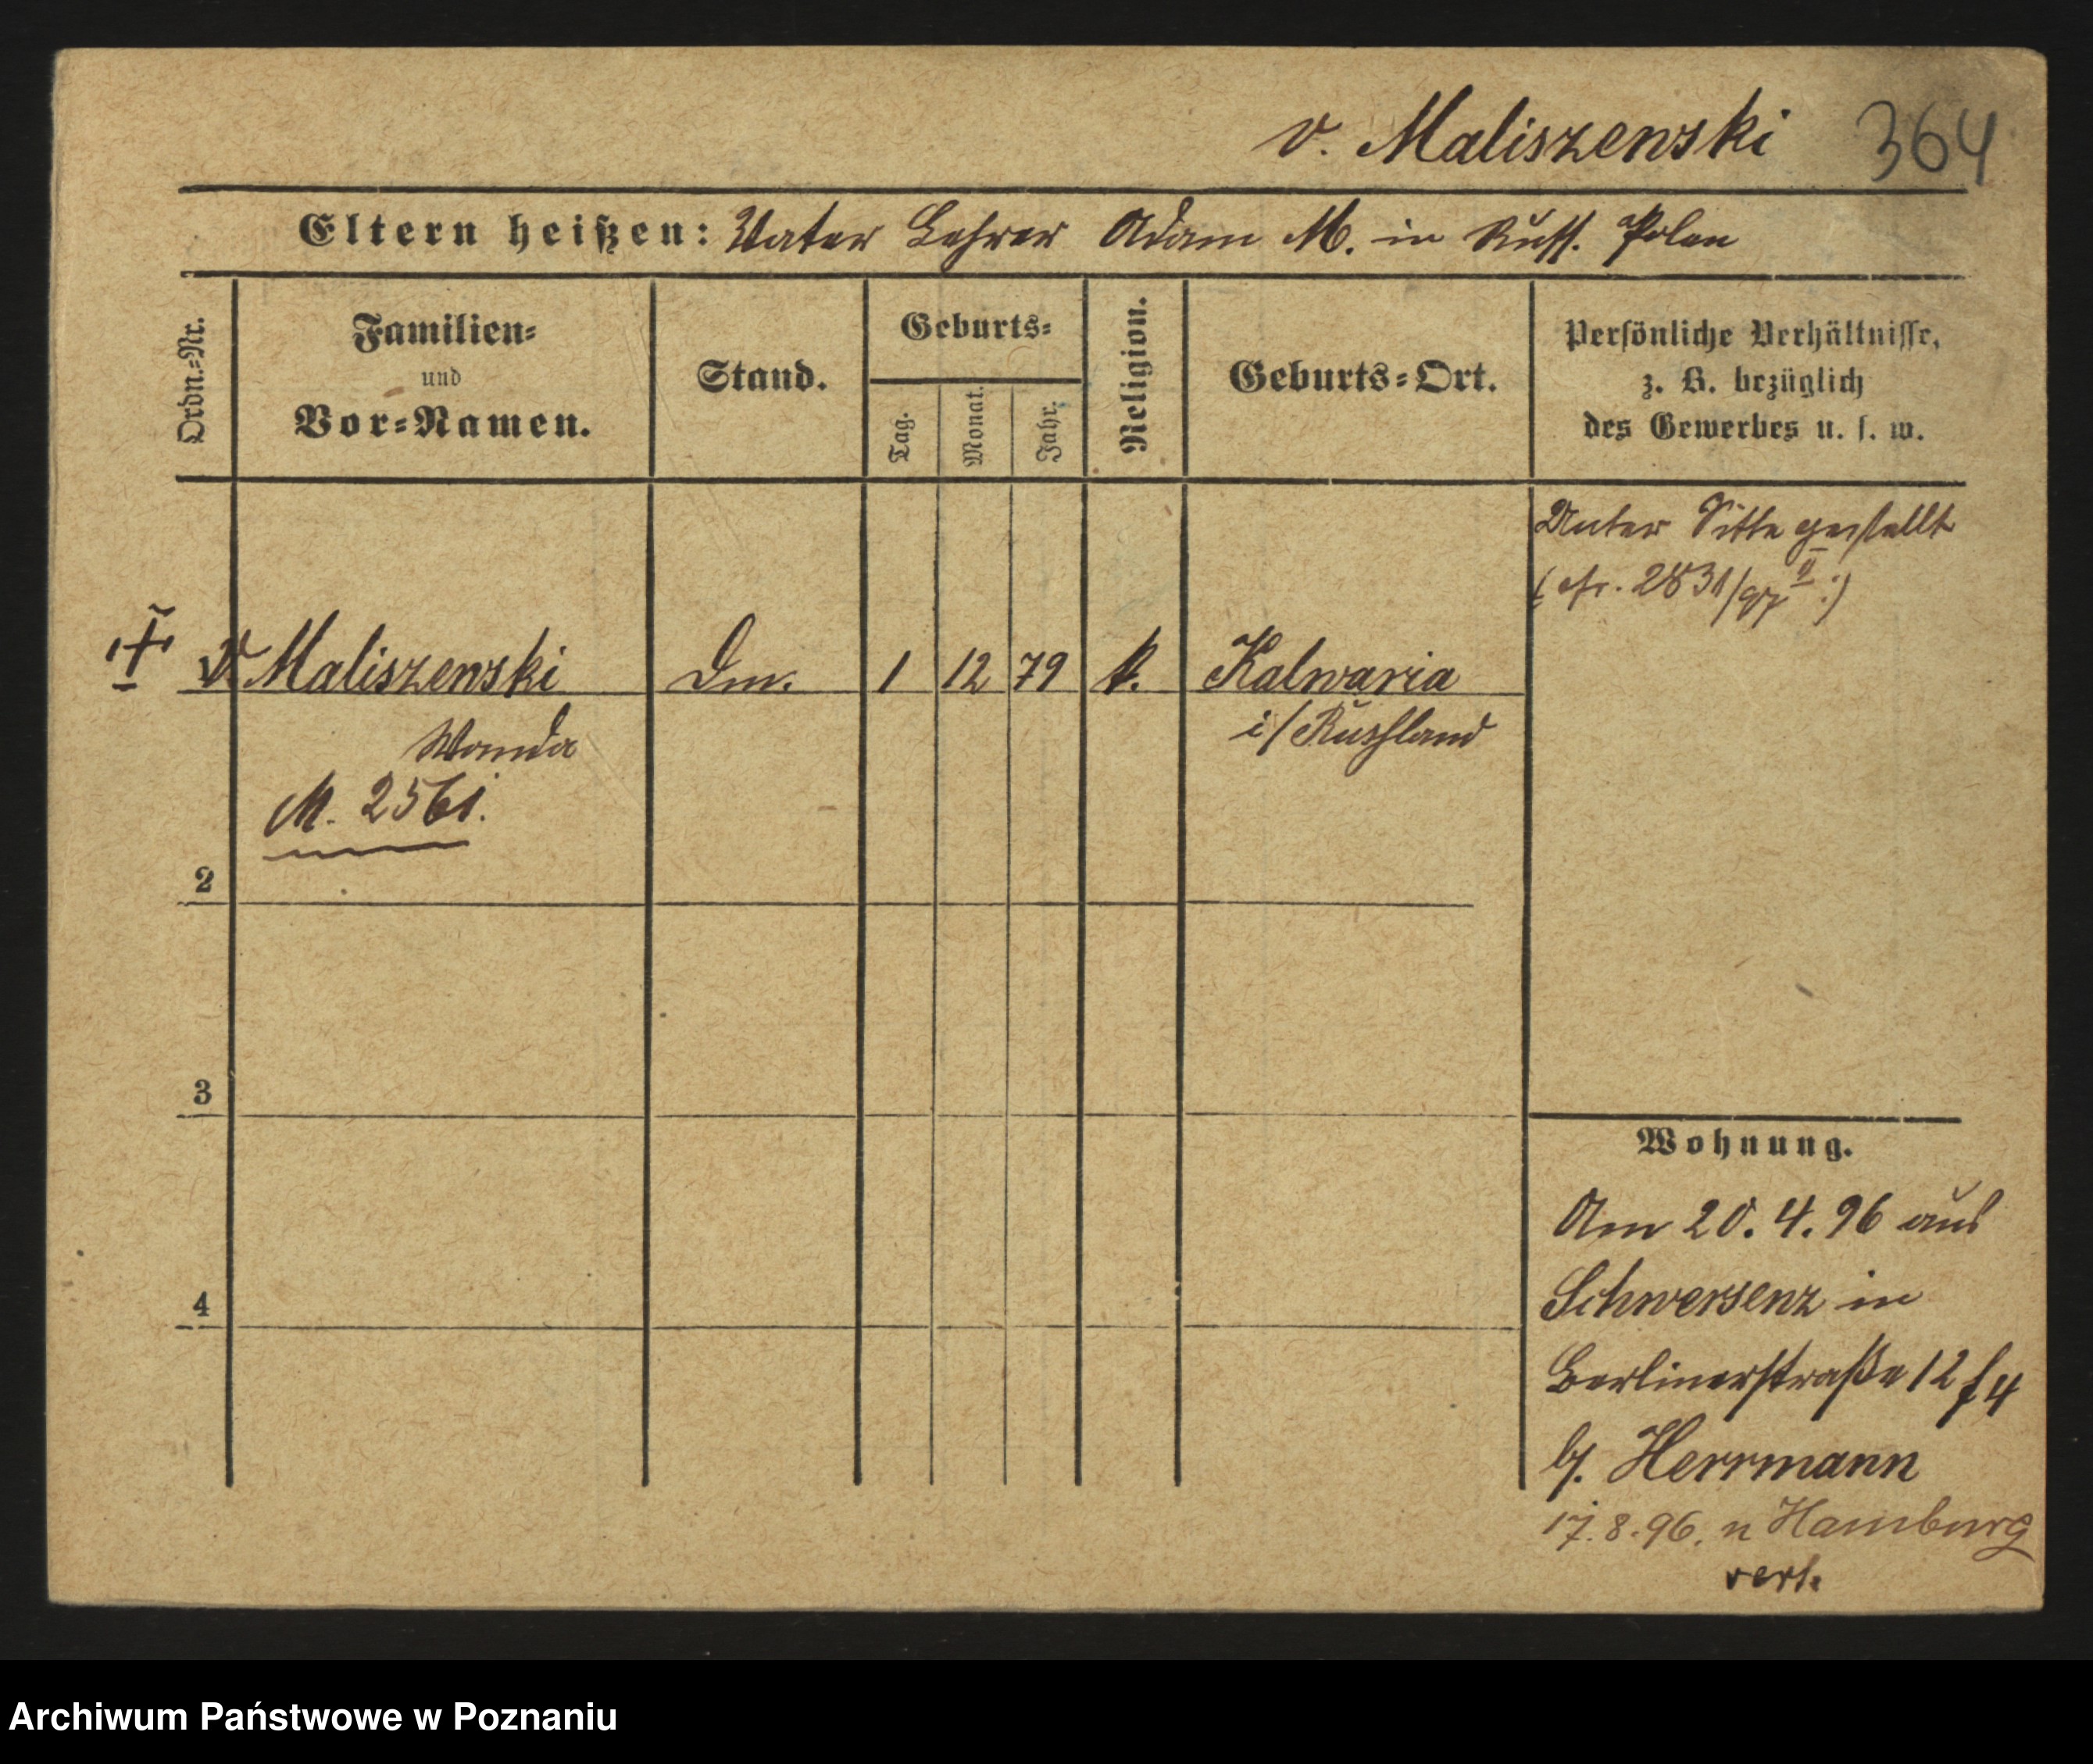 v. Maliszewski 364
Eltern heißen: Vater Lehrer Adam M. in Russ. Polen
Ordn.=Nr.
Familien=
und
Vor=Namen.
Stand.
Geburts=
Tag.
Monat.
Jahr.
Religion.
Geburts=Ort.
Persönliche Verhältnisse,
z. B. bezüglich
des Gewerbes u. s. w.
Unter Sitte gestellt
(cfr. 2831/97 II :)
v. Maliszewski 1 12 79 k. Kalwaria
Wanda i/ Russland
M. 2561.
2
3
4
Wohnung.
Am 20. 4. 96 aus
Schwersenz in
Berlinerstraße 12 f 4
b/. Herrmann
17. 8. 96. n Hamburg
verh.
Archiwum Państwowe w Poznaniu